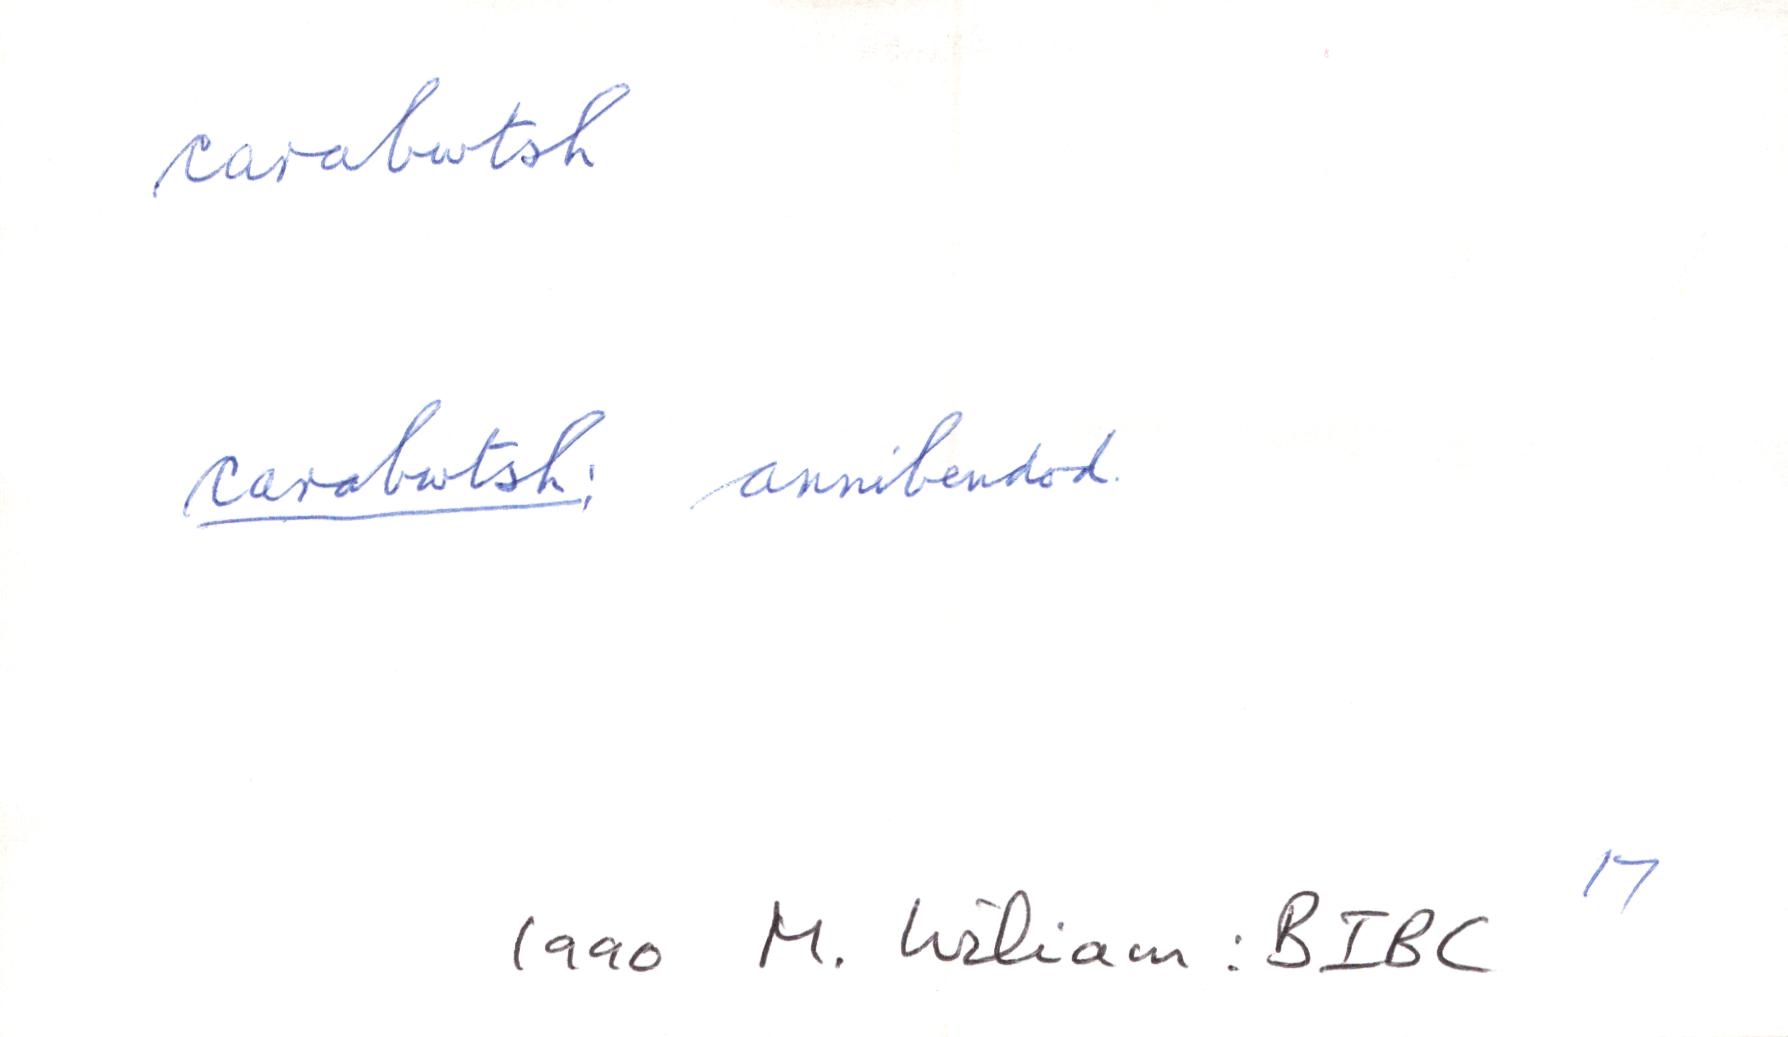 carabwtsh
carabwtsh: annibendod.
17
1990 M. Wiliam: BIBC